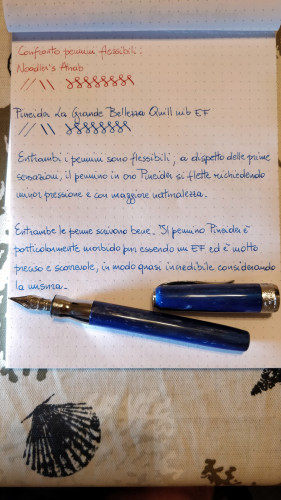 Confronto pennini flessibili:
Noodler's Ahab
Pineider La Grande Bellezza Quill nib EF
Entrambi i pennini sono flessibili, a dispetto delle prime
sensazioni, il pennino in oro Pineider si flette richiedendo
minor pressione e con maggiore naturalezza.
Entrambe le penne scrivono bene. Il pennino Pineider è
particolarmente morbido pur essendo un EF ed è molto
preciso e scorrevole, in modo quasi incredibile considerando
la misura.